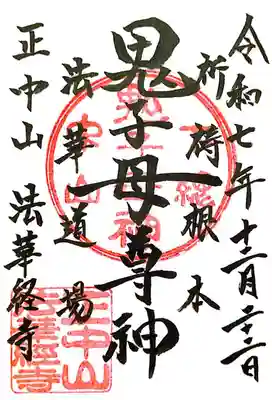 令和七年十二月二十二日
祈祷根本
鬼子母尊神
法華道場
正中山 法華経寺
正中山
法華経寺